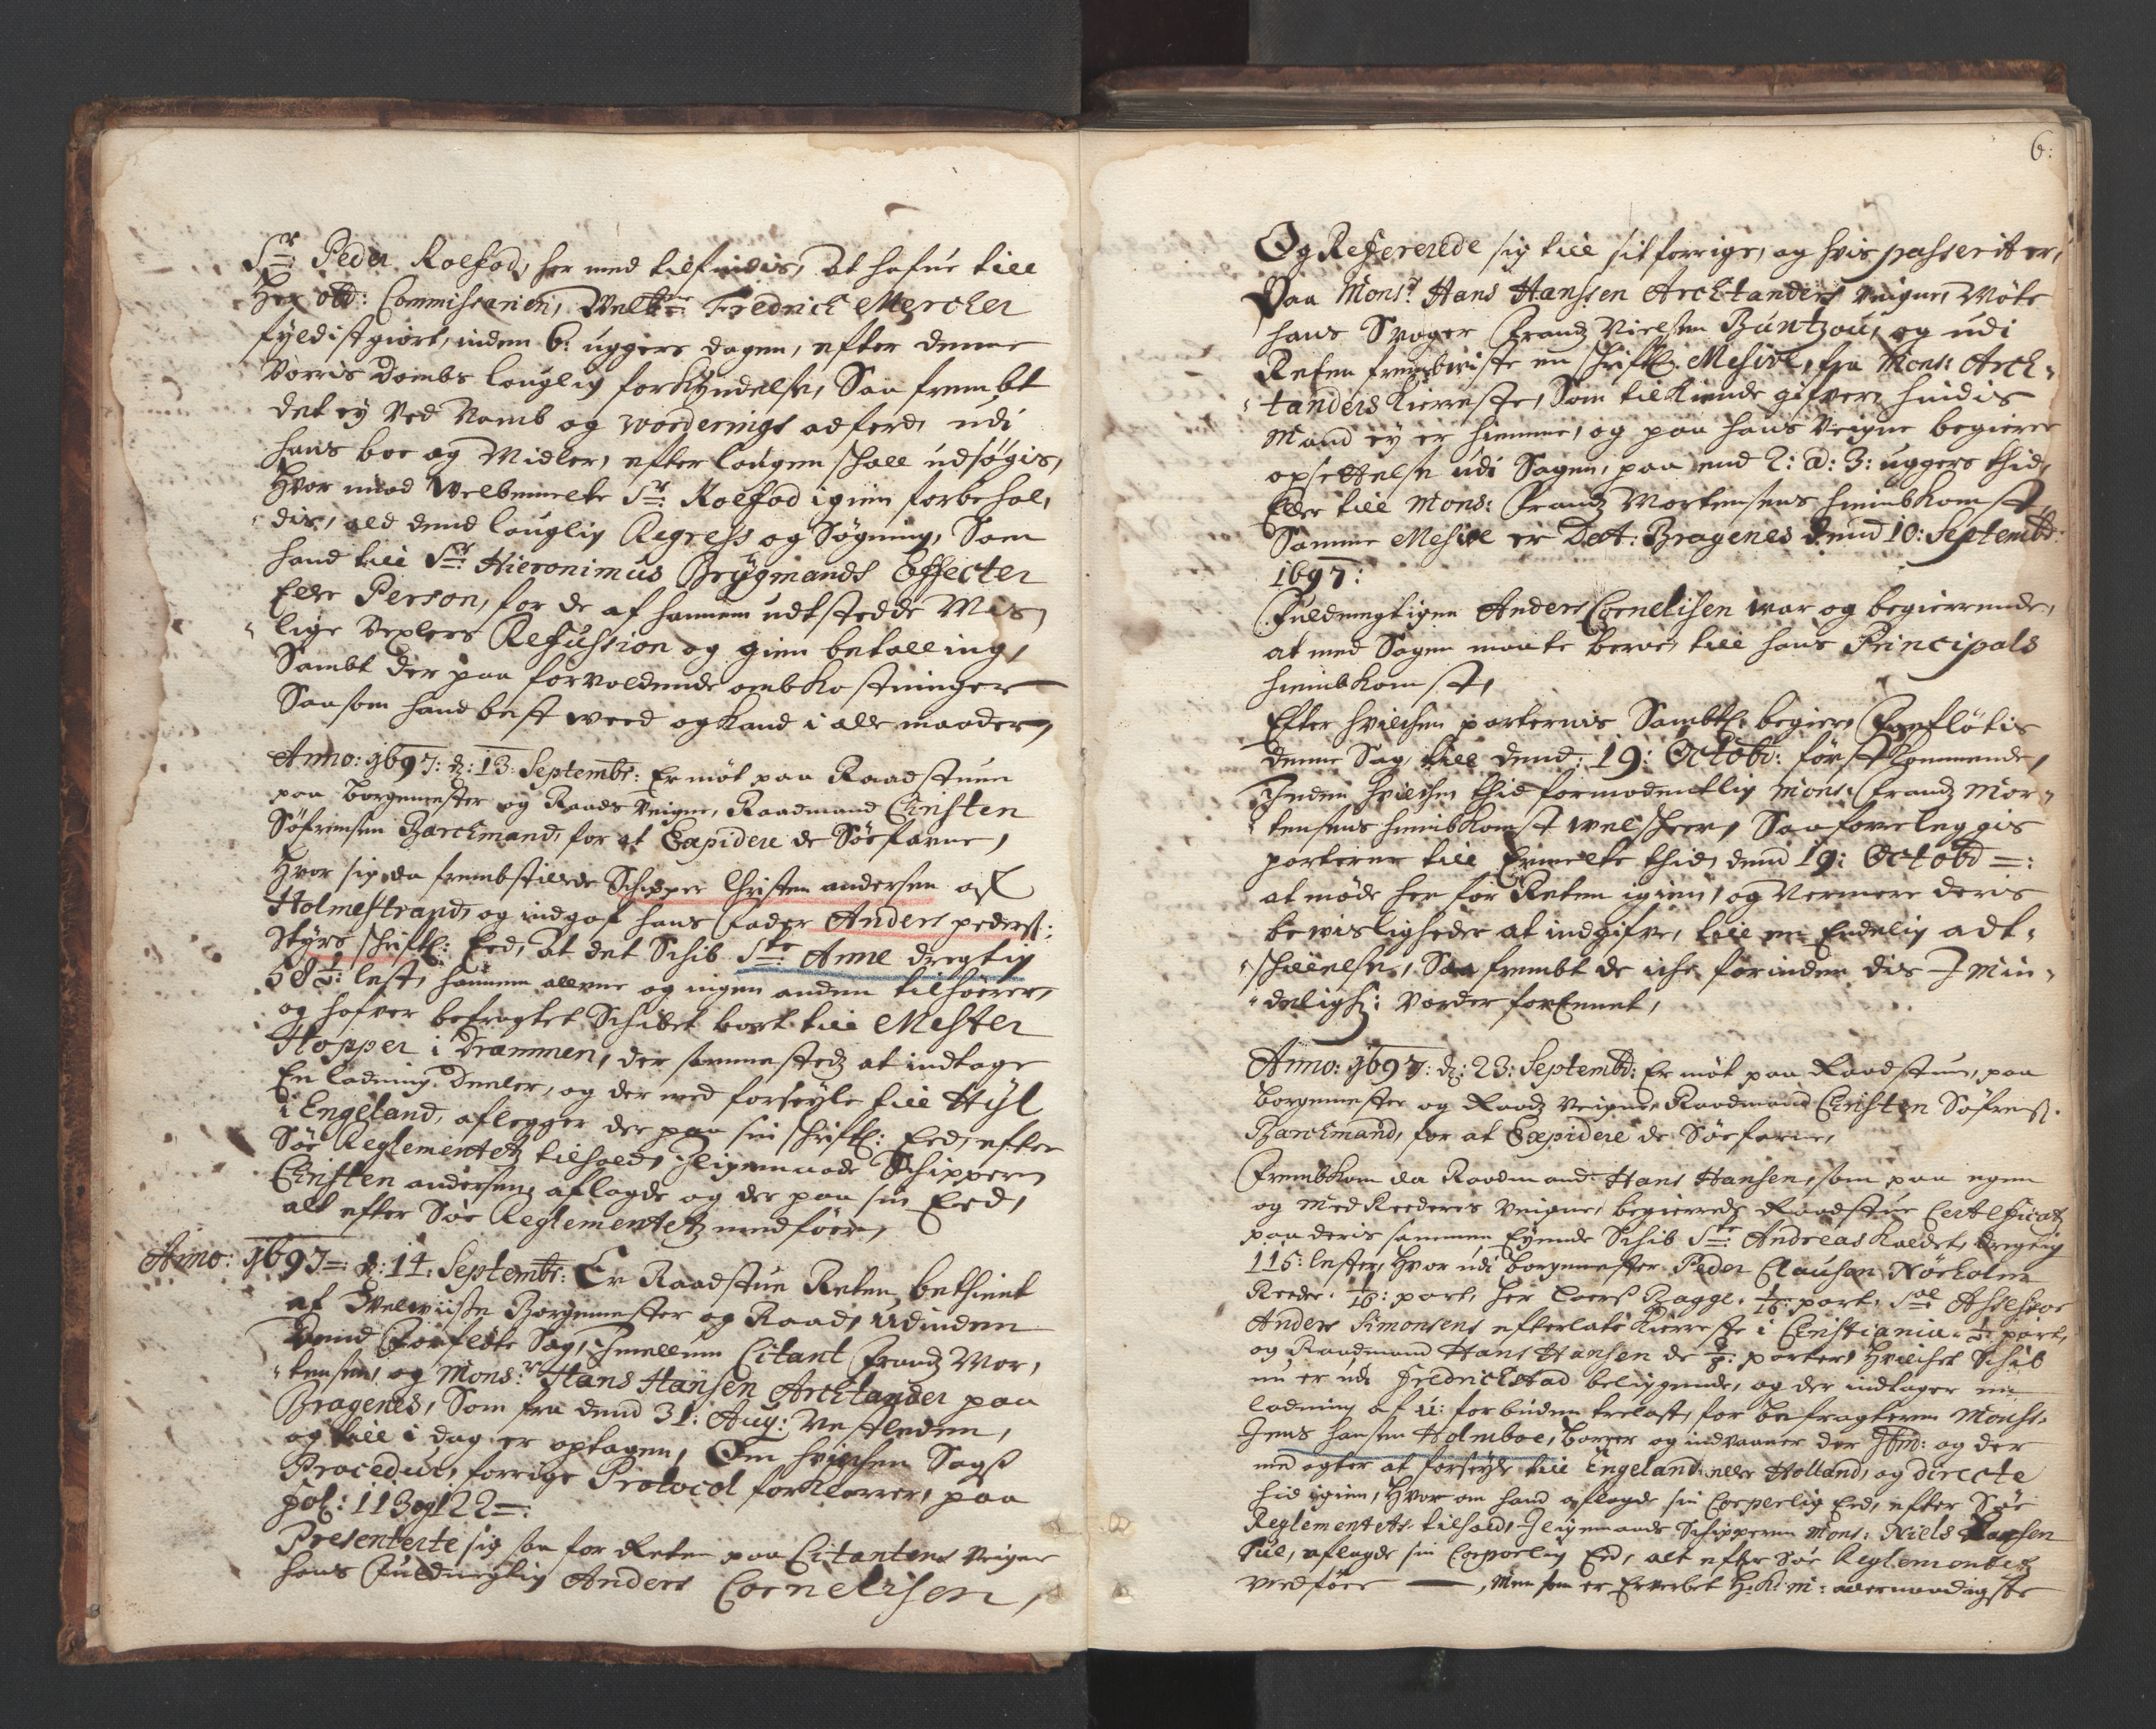 Sr: Peder Rolfod, her med tilfindis, At hafue till
Her ob: Commissarien, Welbr: Fredrich Mercker
fyldistgiort, inden 6: uggers dagen, efter denne
Vorris Dombs louglig forkyndelse, Saa frembt
det ey Ved Namb og worderings adferd, udi
hans boe og Midler, efter lougen schall udsøgis,
Hvor imod Welbemelte Sr: Rolfod igien forbehol,
"dis, ald dend louglig Regress og Søgning, Som
hand till Sr: Hieronimus Brygmands Effecter
Eller Person, for de af hannem udstedde
"lige Vexlers Refussion og gien betalling,
Sambt der paa forvoldende ombkostninger
Saasom hand best weed og kand i alle maader,
Anno: 1697: d: 13: Septembr: Er møt paa Raadstuen
paa borgemester og Raads Veigne, Raadmand Christen
Søfrensen Barchmand, for at Expidere de Søefarne,
Hvor sig da frembstillede Schipper Christen andersen af
Holmestrand, og indgaf hans fader Anders peders:
Styrs schriftl: Eed, At det Schib Ste Anne dregtig
58½: lest, hannem allene og ingen anden tilhører,
og hafver befragtet Schibet bort till Mester
Hopper i Drammen, der sammesteds at indtage
En ladning Deeler, og der med forseyle till Hyl
i Engeland, aflegger der paa sin schriftl: Eed, efter
Søe Reglementetz tilhold, iligemaade Schipperen
Christen andersen aflagde og der paa sin Eed,
alt efter Søe Reglementetz medføer,
Anno: 1697=: d: 14: Septembr: Er Raadstue Reten bethient
af Welwiise Borgemester og Raad, udinden
Dend Forfløte Sag, Imellum Citant Frandz Mor,
"tensen, og Monsr: Hans Hansen Archtander paa
Bragenes, Som fra dend 31: Aug: Vestleden,
og till i dag er optagen, Om hvilchen Sags
Procedur, forrige Protocol forklarer, paa
fol: 113 og 122=:
Presenterte sig saa for Reten paa Citantens Veigne
hans Fuldmegtig Anders Cornelisen,
6:
Og Refererede sig till sit forrige, og hvis passerit er,
Paa Monsr Hans Hanssen Archtanders Veigne, Møte
hans Svoger Frandz Nielsen Buntzou, og udi
Reten frembwiste en schriftl: Missive, fra Mons: Arch"
"tanders Kierreste, Som tilkiende gifver, hindis
Mand ey er hiemme, og paa hans Veigne begierer
opsettelse udi Sagen, paa end 2: a: 3: uggers thid,
Eller till Mons: Frandz Mortensens hiembkomst,
Samme Missive er Dat: Bragenes dend 10: Septembr:
1697:
Fuldmegtigen Anders Cornelisen war og begierende,
at med Sagen maate beroe, till hans Principals
hiembkomst,
Efter hvilchen parternis Sambtl: begier, Forfløtis
denne Sag, till dend: 19: Octobr: førstkommende,
Inden hvilchen thid formodentlig Mons: Frandz Mor"
"tensens hiembkomst wel scheer, Saa foreleggis
parterne till Ermelte thid, dend 19: Octobr=:
at møde her for Reten igien, og Nermere deris
bewisligheder at indgifve, till en Endelig adt"
"schillelse, Saa frembt de iche forinden dis I Min"
"deligh: Vorder forEenet,
Anno: 1697: d: 23: Septembr: Er møt paa Raadstuen, paa
borgemester og Raadz Veigne, Raadmand Christen Søfrens:
Barchmand, for at Expidere de Søefarne,
Frembkom da Raadmand Hans Hansen, som paa egen
og Med Reederes Veigne, begierede Raadstue Certificatz
paa deris sammen Eyende Schib Ste: Andreas kaldet, dregtig
115: lester, Hvor udi borgemester Peder Clausøn Nørholm
Reeder 1/16: part, her Laers Bagge 1/16: part, Sal
Anders Simonsens efterlate Kierreste i Christiania part,
og Raadmand Hans Hansen de parter, Hvilchet Schib
nu er udi Fredrichstad beliggende, og der indtager en
ladning af u: forbuden trelast, for befragteren Monsr
Jens Hansen Holmboe, borger og indvaaner der og der
med agter at forseyle till Engeland eller Holland, og directe
hid igien, Hvor om hand aflagde sin Corperlig Eed, efter Søe
Reglementets tilhold, Iligemaade Schipperen Mons: Niels Hansen
Sul, aflagde sin Corporlig Eed, alt efter Søe Reglementetz
Medføer —, Men som er Erverbet H: K: M: allernaadigste